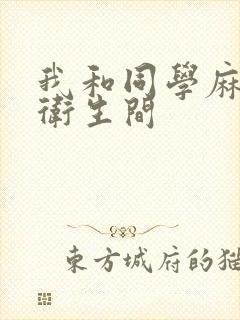 我和同學麻
衛生間
東方城府的猫